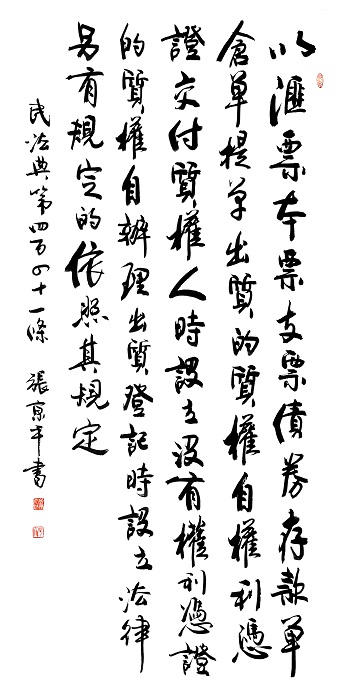 以匯票本票支票債券存款單
倉單提單出質的質權自權利憑
證交付質權人時設立沒有權利憑證
的質權自辦理出質登記時設立法律
另有規定的依照其規定
民法典第四百四十一條 張京平書